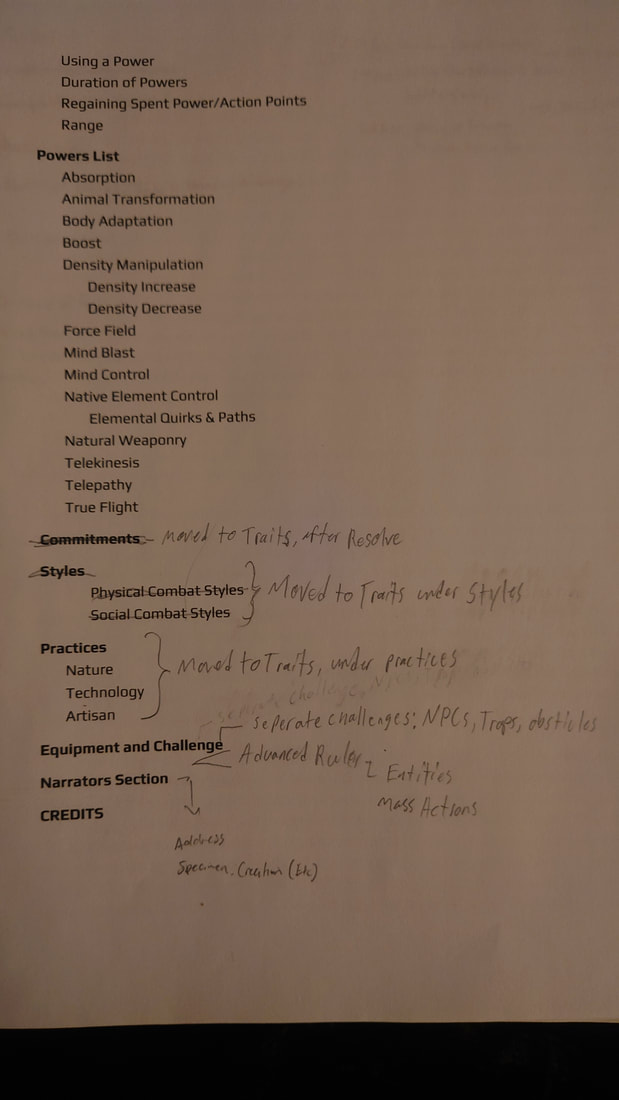 Using a Power
Duration of Powers
Regaining Spent Power/Action Points
Range
Powers List
Absorption
Animal Transformation
Body Adaptation
Boost
Density Manipulation
Density Increase
Density Decrease
Force Field
Mind Blast
Mind Control
Native Element Control
Elemental Quirks & Paths
Natural Weaponry
Telekinesis
Telepathy
True Flight
Commitments - Moved to Traits, after Resolve
Styles
Physical Combat Styles
Moved to Traits under Styles
Social Combat Styles
Practices
Nature
Moved to Traits, under practices
Technology
Artisan
seperate challenges: NPCs, Traps, obsticles
Equipment and Challenge
Advanced Rules
Entities
Narrators Section
Mass Actions
CREDITS
Address
Specimen, Creation (Etc)